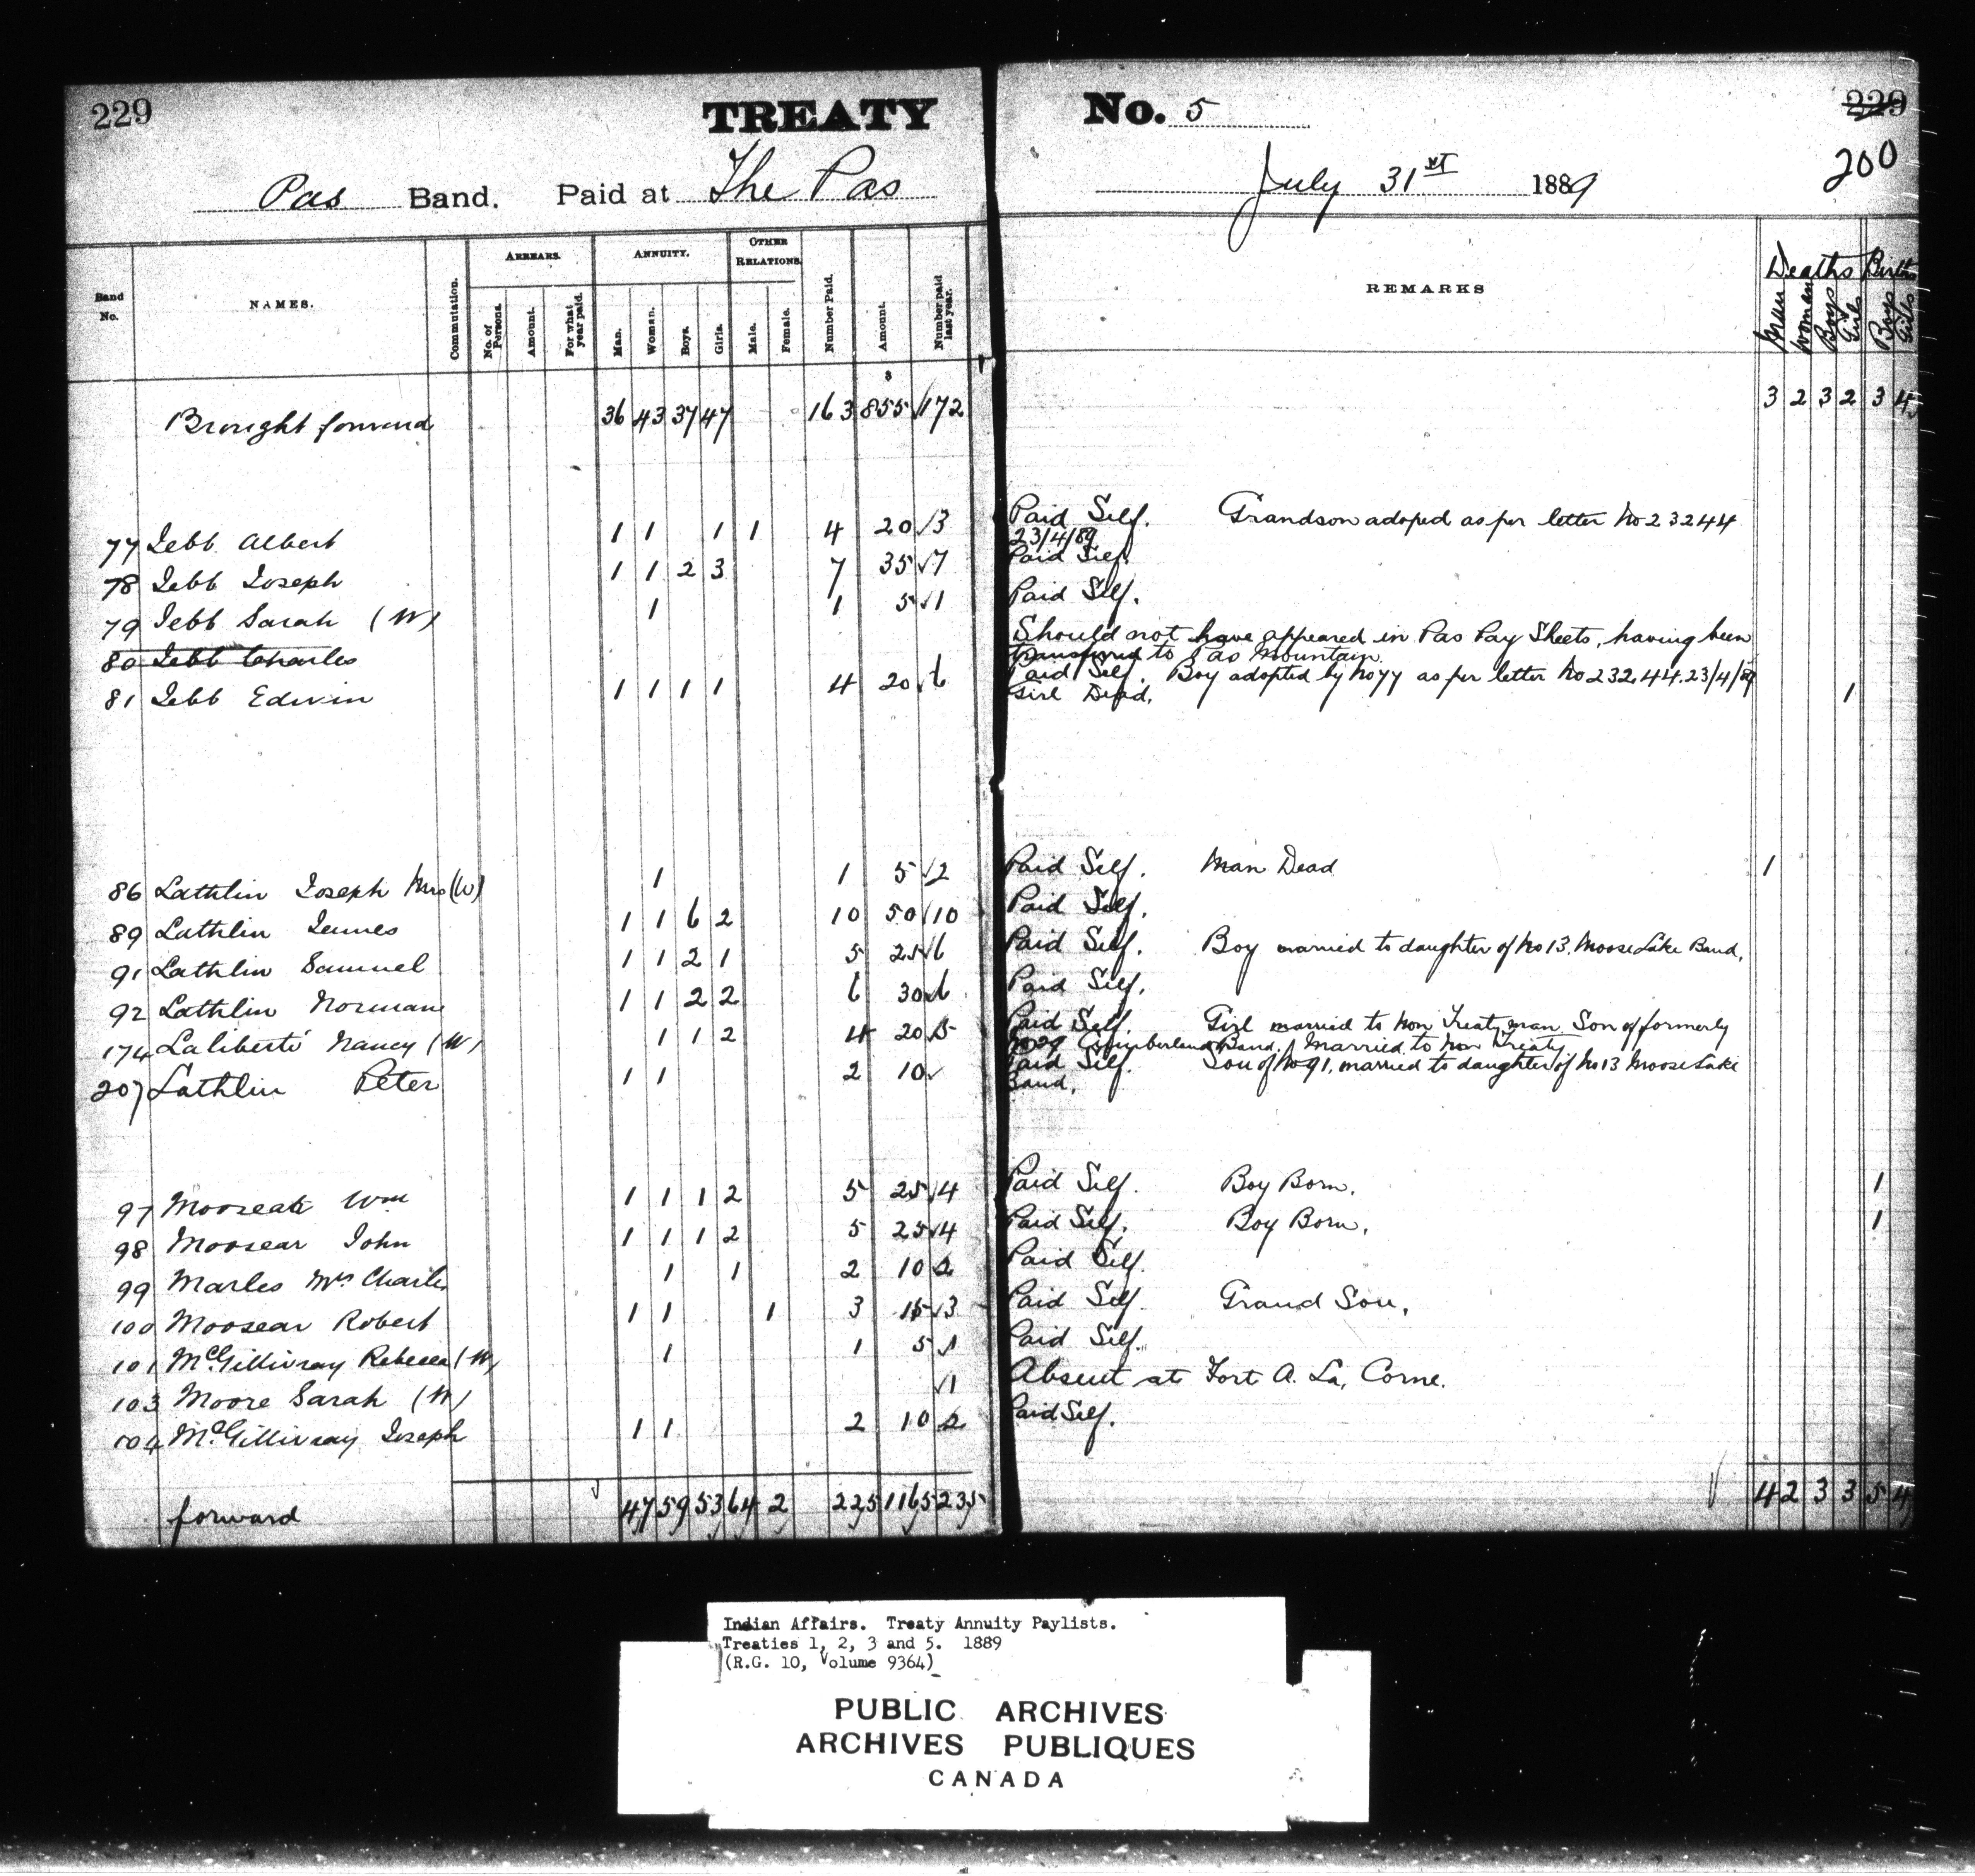 229 TREATY No. 5 229
200
Pas Band. Paid at The Pas July 31st 1889
Band No. NAMES. Commutation. ARREARS. No. of Persons. Amount. For what year paid. ANNUITY. Man. Woman. Boys. Girls. OTHER RELATIONS. Male. Female. Number Paid. Amount. Number paid last year. REMARKS Deaths Men Women Boys Girls Births Boys Girls
Brought forward 36 43 37 47 163 855 172 3 2 3 2 3 4
77 Jebb Albert 1 1 1 1 4 20 3 Paid Self. Grandson adoped as per letter No 23244
23/4/89
78 Jebb Joseph 1 1 2 3 7 35 7 Paid Self.
79 Jebb Sarah (W) 1 1 5 1 Paid Self.
80 Jebb Charles Should not have appeared in Pas Pay Sheets, having been
transferred to Pas Mountain.
81 Jebb Edwin 1 1 1 1 4 20 6 Paid Self. Boy adopted by No 77 as per letter No 232,44. 23/4/89 1
Girl Dead.
86 Lathlin Joseph Mrs (W) 1 1 5 2 Paid Self. Man Dead 1
89 Lathlin James 1 1 6 2 10 50 10 Paid Self.
91 Lathlin Samuel 1 1 2 1 5 25 6 Paid Self. Boy married to daughter of No 13. Moose Lake Band.
92 Lathlin Norman 1 1 2 2 6 30 6 Paid Self.
174 Laliberté Nancy (W) 1 1 2 4 20 5 Paid Self. Girl married to Non Treaty man Son of formerly
No 29 Cumberland Band. Married to Non Treaty
207 Lathlin Peter 1 1 2 10 Paid Self. Son of No 91, married to daughter of No 13 Moose Lake
Band.
97 Moosear Wm 1 1 1 2 5 25 4 Paid Self. Boy Born. 1
98 Moosear John 1 1 1 2 5 25 4 Paid Self. Boy Born. 1
99 Marles Mrs Charles 1 1 2 10 2 Paid Self.
100 Moosear Robert 1 1 1 3 15 3 Paid Self. Grand Son.
101 McGillivray Rebecca (W) 1 1 5 1 Paid Self.
103 Moore Sarah (W) 1 Absent at Fort A. La. Corne.
104 McGillivray Joseph 1 1 2 10 2 Paid Self.
forward 47 59 53 64 2 225 1165 235 4 2 3 3 5 4
Indian Affairs. Treaty Annuity Paylists.
Treaties 1, 2, 3 and 5. 1889
(R.G. 10, Volume 9364)
PUBLIC ARCHIVES
ARCHIVES PUBLIQUES
CANADA